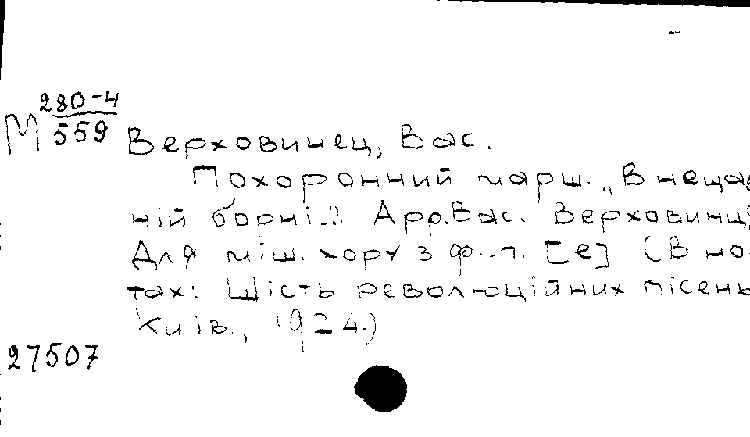 М 280-4
559
Верховинец, Вас.
Похоронний марш. „В неща
ній борні..." Арр. Вас. Верховинц
Для міш. хору з ф.-п. [e] (В но-
тах: Шість революційних пісень
Київ., 1924.)
27507